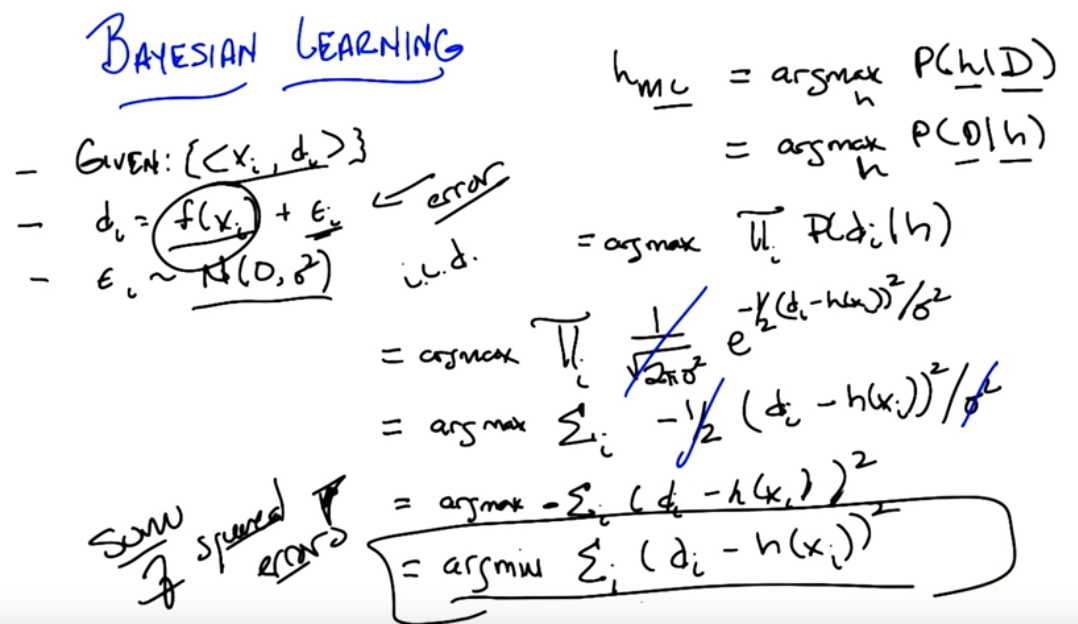 BAYESIAN LEARNING
- GIVEN: {<xᵢ, dᵢ>}
- dᵢ = f(xᵢ) + εᵢ ← error
- εᵢ ~ N(0, σ²) i.i.d.
h_ML = argmax_h P(h|D)
= argmax_h P(D|h)
= argmax ∏ᵢ P(dᵢ|h)
= argmax ∏ᵢ 1/√(2πσ²) e^(-½(dᵢ-h(xᵢ))²/σ²)
= argmax Σᵢ -½ (dᵢ - h(xᵢ))²/σ²
= argmax -Σᵢ (dᵢ - h(xᵢ))²
= argmin Σᵢ (dᵢ - h(xᵢ))²
Sum of squared errors